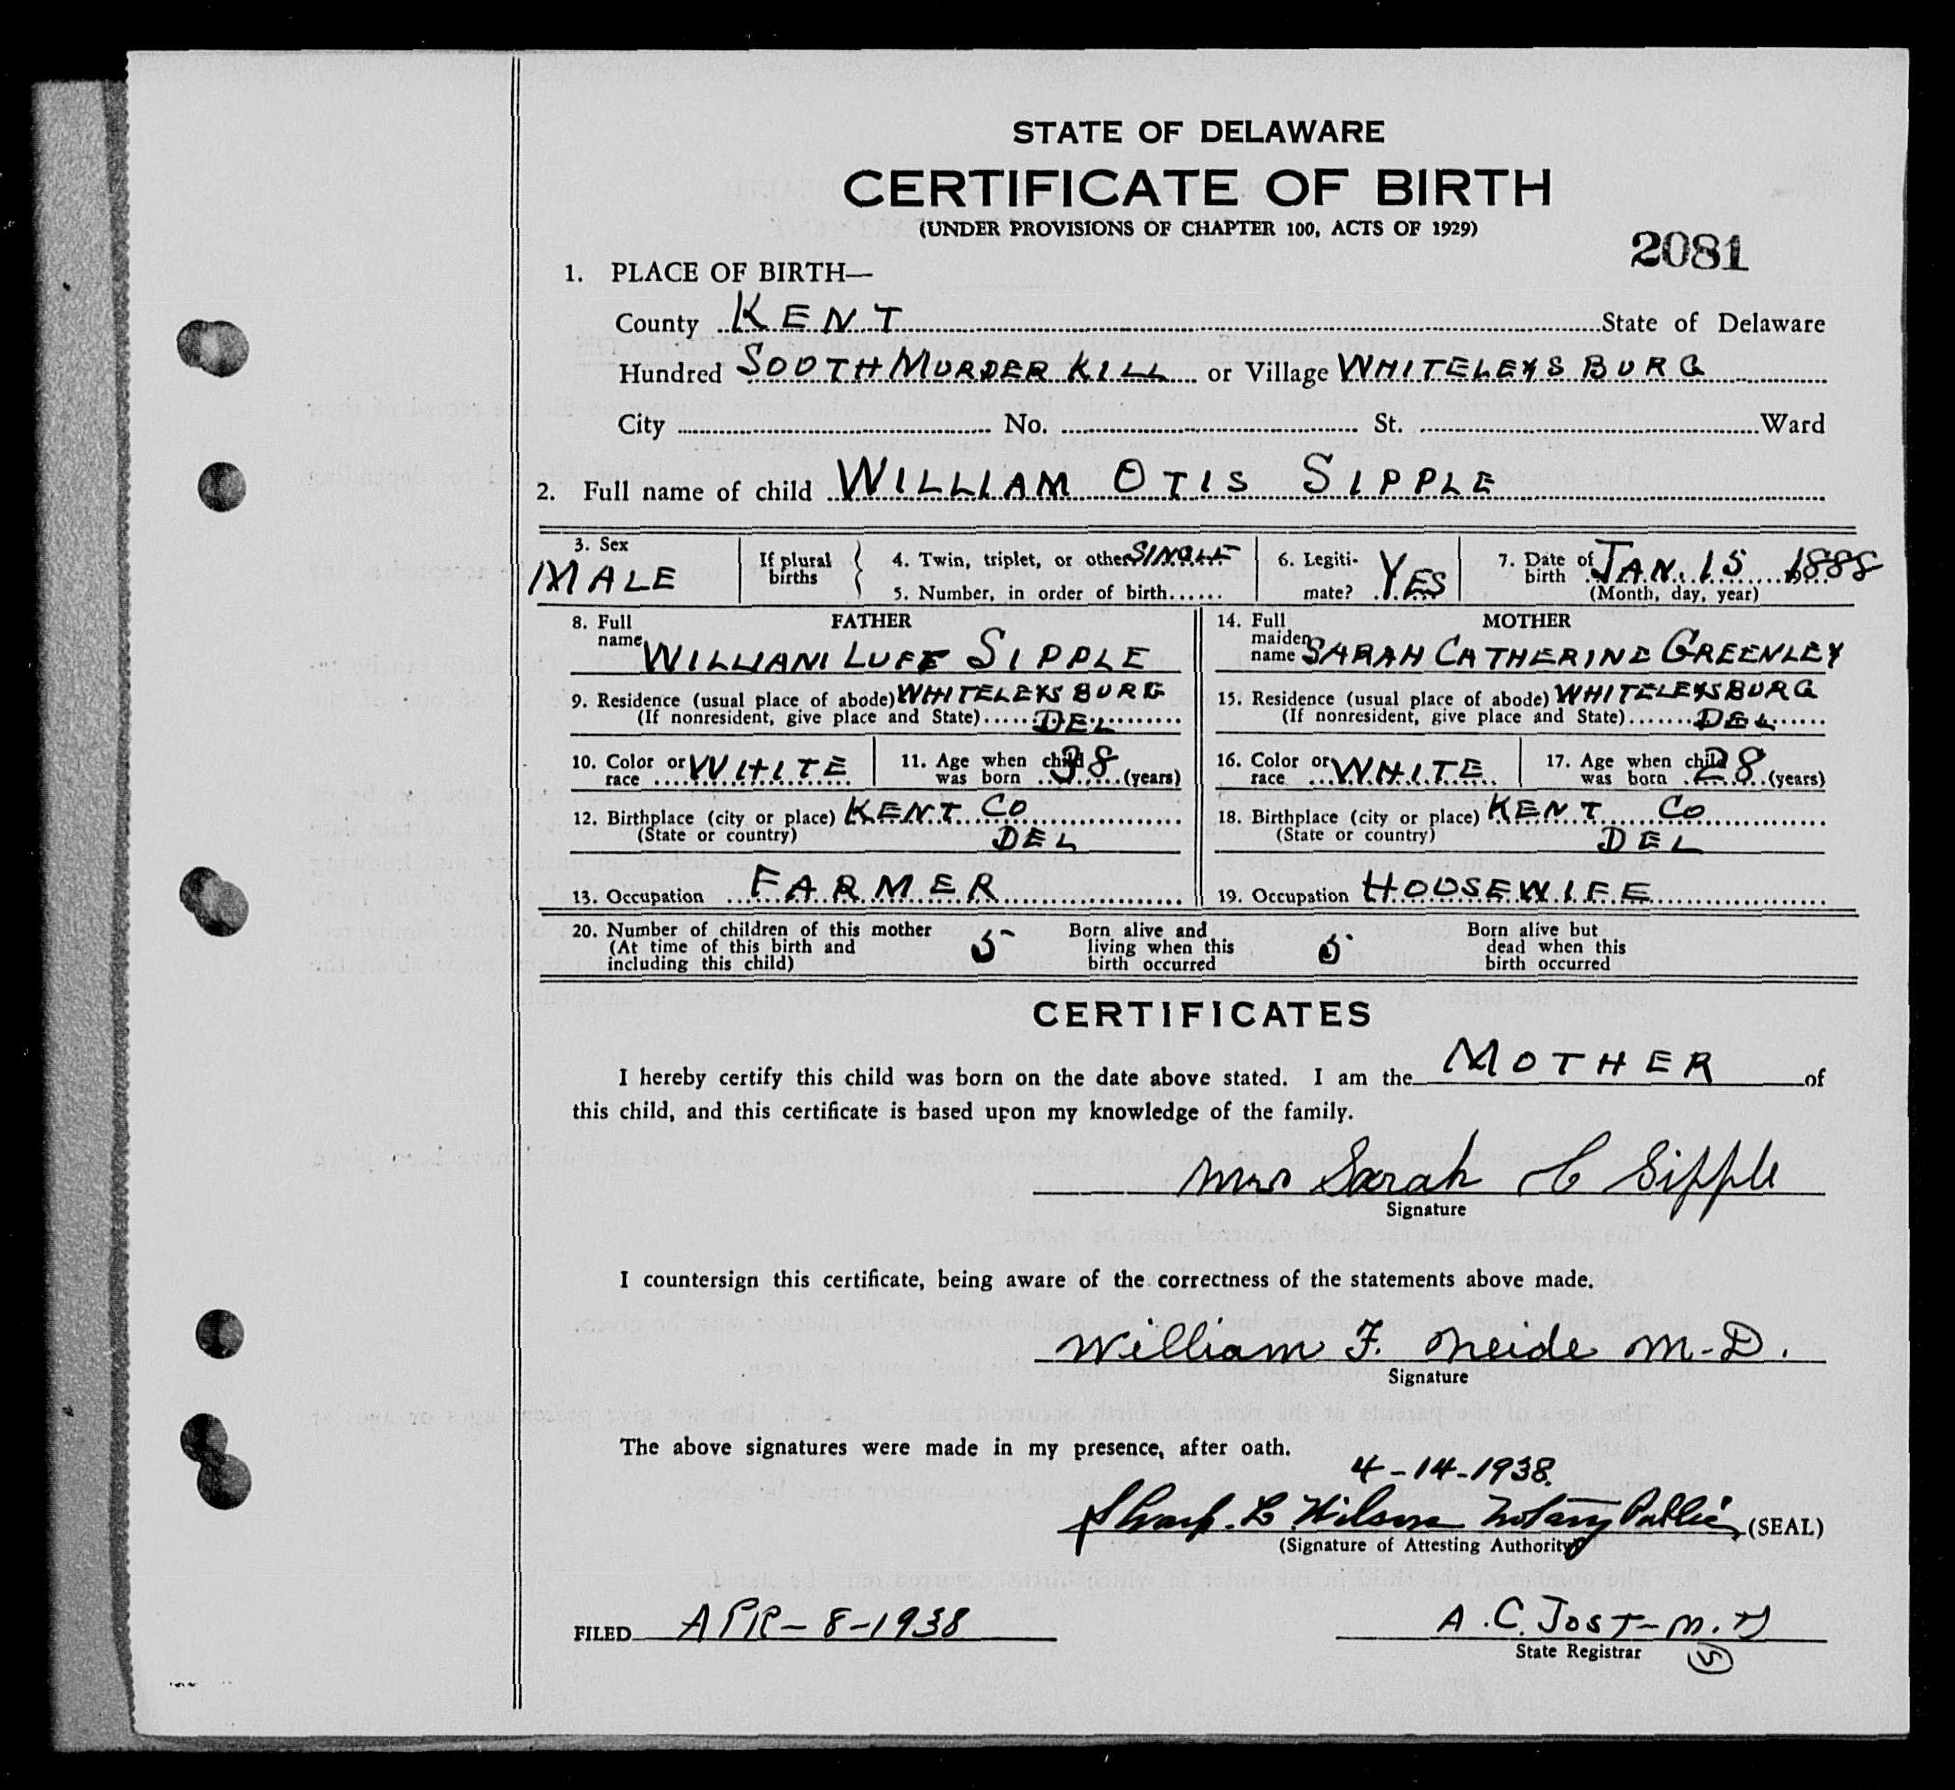 STATE OF DELAWARE
CERTIFICATE OF BIRTH
(UNDER PROVISIONS OF CHAPTER 100, ACTS OF 1929)
2081
1. PLACE OF BIRTH—
County KENT State of Delaware
Hundred SOUTH MURDER KILL or Village WHITELEYSBURG
City No. St. Ward
2. Full name of child WILLIAM OTIS SIPPLE
3. Sex MALE
If plural births
4. Twin, triplet, or other SINGLE
5. Number, in order of birth
6. Legitimate? YES
7. Date of birth JAN. 15 1888
(Month, day, year)
FATHER
8. Full name WILLIAM LUFF SIPPLE
9. Residence (usual place of abode) WHITELEYSBURG
(If nonresident, give place and State) DEL
10. Color or race WHITE
11. Age when child was born 38 (years)
12. Birthplace (city or place) KENT CO
(State or country) DEL
13. Occupation FARMER
MOTHER
14. Full maiden name SARAH CATHERINE GREENLEY
15. Residence (usual place of abode) WHITELEYSBURG
(If nonresident, give place and State) DEL
16. Color or race WHITE
17. Age when child was born 28 (years)
18. Birthplace (city or place) KENT CO
(State or country) DEL
19. Occupation HOUSEWIFE
20. Number of children of this mother
(At time of this birth and
including this child) 5
Born alive and
living when this
birth occurred 5
Born alive but
dead when this
birth occurred
CERTIFICATES
I hereby certify this child was born on the date above stated. I am the MOTHER of
this child, and this certificate is based upon my knowledge of the family.
Mrs Sarah C Sipple
Signature
I countersign this certificate, being aware of the correctness of the statements above made.
William F. Neide M-D.
Signature
The above signatures were made in my presence, after oath.
4-14-1938.
L Wilson Notary Public (SEAL)
(Signature of Attesting Authority)
FILED APR-8-1938
A. C. JOST-M.D
State Registrar